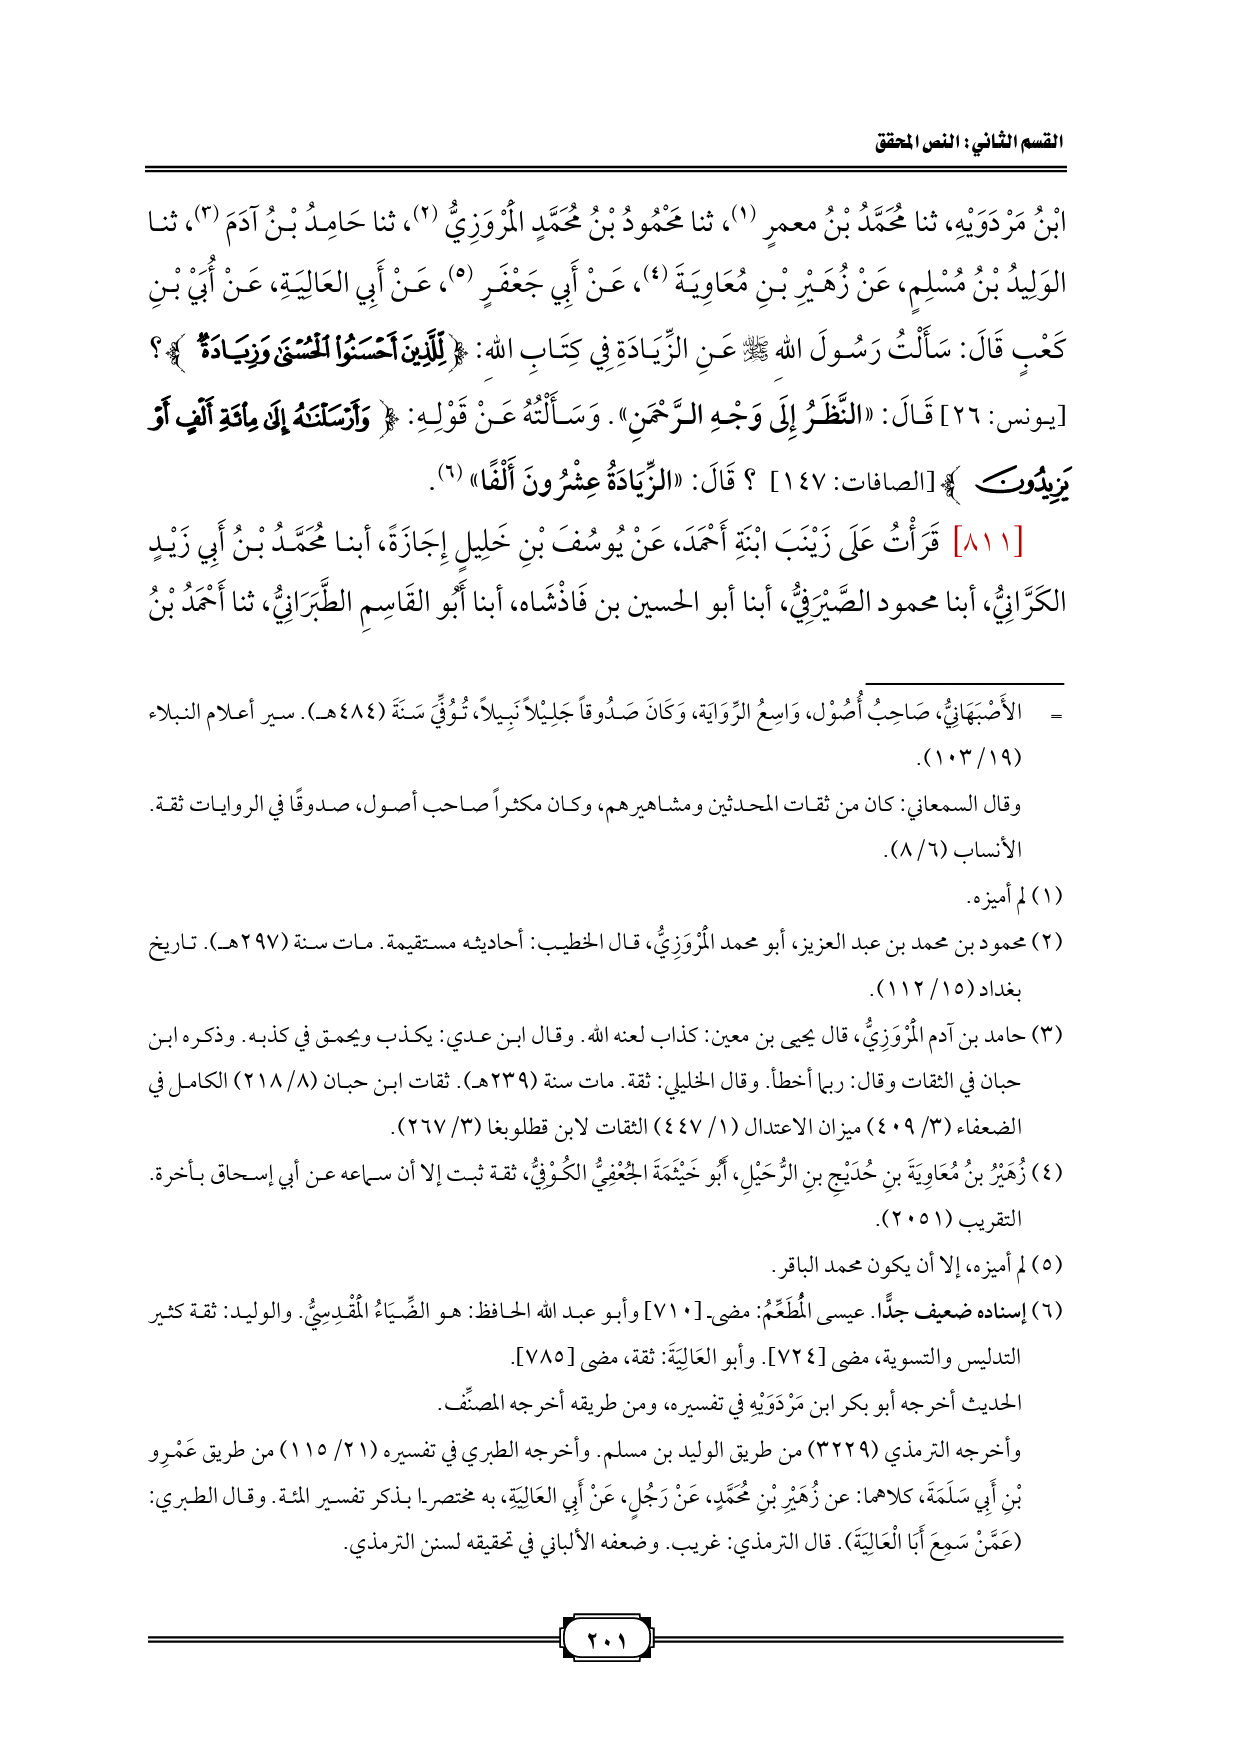 القسم الثاني: النص المحقق
ابْنُ مَرْدَوَيْهِ، ثنا مُحَمَّدُ بْنُ معمرٍ (١)، ثنا مَحْمُودُ بْنُ مُحَمَّدٍ الْمَرْوَزِيُّ (٢)، ثنا حَامِدُ بْنُ آدَمَ (٣)، ثنا
الوَلِيدُ بْنُ مُسْلِمٍ، عَنْ زُهَيْرِ بْنِ مُعَاوِيَةَ (٤)، عَنْ أَبِي جَعْفَرٍ (٥)، عَنْ أَبِي العَالِيَةِ، عَنْ أُبَيِّ بْنِ
كَعْبٍ قَالَ: سَأَلْتُ رَسُولَ اللهِ ﷺ عَنِ الزِّيَادَةِ فِي كِتَابِ اللهِ: ﴿لِّلَّذِينَ أَحْسَنُوا۟ ٱلْحُسْنَىٰ وَزِيَادَةٌ ﴾؟
[يونس: ٢٦] قَالَ: «النَّظَرُ إِلَى وَجْهِ الرَّحْمَنِ». وَسَأَلْتُهُ عَنْ قَوْلِهِ: ﴿ وَأَرْسَلْنَٰهُ إِلَىٰ مِا۟ئَةِ أَلْفٍ أَوْ
يَزِيدُونَ ﴾ [الصافات: ١٤٧] ؟ قَالَ: «الزِّيَادَةُ عِشْرُونَ أَلْفًا» (٦).
[٨١١] قَرَأْتُ عَلَى زَيْنَبَ ابْنَةِ أَحْمَدَ، عَنْ يُوسُفَ بْنِ خَلِيلٍ إِجَازَةً، أبنا مُحَمَّدُ بْنُ أَبِي زَيْدٍ
الكَرَّانِيُّ، أبنا محمود الصَّيْرَفِيُّ، أبنا أبو الحسين بن فَاذْشَاه، أبنا أَبُو القَاسِمِ الطَّبَرَانِيُّ، ثنا أَحْمَدُ بْنُ
= الأَصْبَهَانِيُّ، صَاحِبُ أُصُوْل، وَاسِعُ الرِّوَايَة، وَكَانَ صَدُوقاً جَلِيْلاً نَبِيلاً، تُوُفِّيَ سَنَةَ (٤٨٤هـ). سير أعلام النبلاء
(١٩/ ١٠٣).
وقال السمعاني: كان من ثقات المحدثين ومشاهيرهم، وكان مكثراً صاحب أصول، صدوقًا في الروايات ثقة.
الأنساب (٦/ ٨).
(١) لم أميزه.
(٢) محمود بن محمد بن عبد العزيز، أبو محمد الْمَرْوَزِيُّ، قال الخطيب: أحاديثه مستقيمة. مات سنة (٢٩٧هـ). تاريخ
بغداد (١٥/ ١١٢).
(٣) حامد بن آدم الْمَرْوَزِيُّ، قال يحيى بن معين: كذاب لعنه الله. وقال ابن عدي: يكذب ويحمق في كذبه. وذكره ابن
حبان في الثقات وقال: ربما أخطأ. وقال الخليلي: ثقة. مات سنة (٢٣٩هـ). ثقات ابن حبان (٨/ ٢١٨) الكامل في
الضعفاء (٣/ ٤٠٩) ميزان الاعتدال (١/ ٤٤٧) الثقات لابن قطلوبغا (٣/ ٢٦٧).
(٤) زُهَيْرُ بنُ مُعَاوِيَةَ بنِ حُدَيْجِ بنِ الرُّحَيْلِ، أَبُو خَيْثَمَةَ الجُعْفِيُّ الكُوْفِيُّ، ثقة ثبت إلا أن سماعه عن أبي إسحاق بأخرة.
التقريب (٢٠٥١).
(٥) لم أميزه، إلا أن يكون محمد الباقر.
(٦) إسناده ضعيف جدًّا. عيسى الْمُطَعِّمُ: مضى [٧١٠] وأبو عبد الله الحافظ: هو الضِّيَاءُ الْمَقْدِسِيُّ. والوليد: ثقة كثير
التدليس والتسوية، مضى [٧٢٤]. وأبو العَالِيَةَ: ثقة، مضى [٧٨٥].
الحديث أخرجه أبو بكر ابن مَرْدَوَيْهِ في تفسيره، ومن طريقه أخرجه المصنِّف.
وأخرجه الترمذي (٣٢٢٩) من طريق الوليد بن مسلم. وأخرجه الطبري في تفسيره (٢١/ ١١٥) من طريق عَمْرِو
بْنِ أَبِي سَلَمَةَ، كلاهما: عن زُهَيْرِ بْنِ مُحَمَّدٍ، عَنْ رَجُلٍ، عَنْ أَبِي العَالِيَةِ، به مختصرا بذكر تفسير المئة. وقال الطبري:
(عَمَّنْ سَمِعَ أَبَا الْعَالِيَةَ). قال الترمذي: غريب. وضعفه الألباني في تحقيقه لسنن الترمذي.
٢٠١